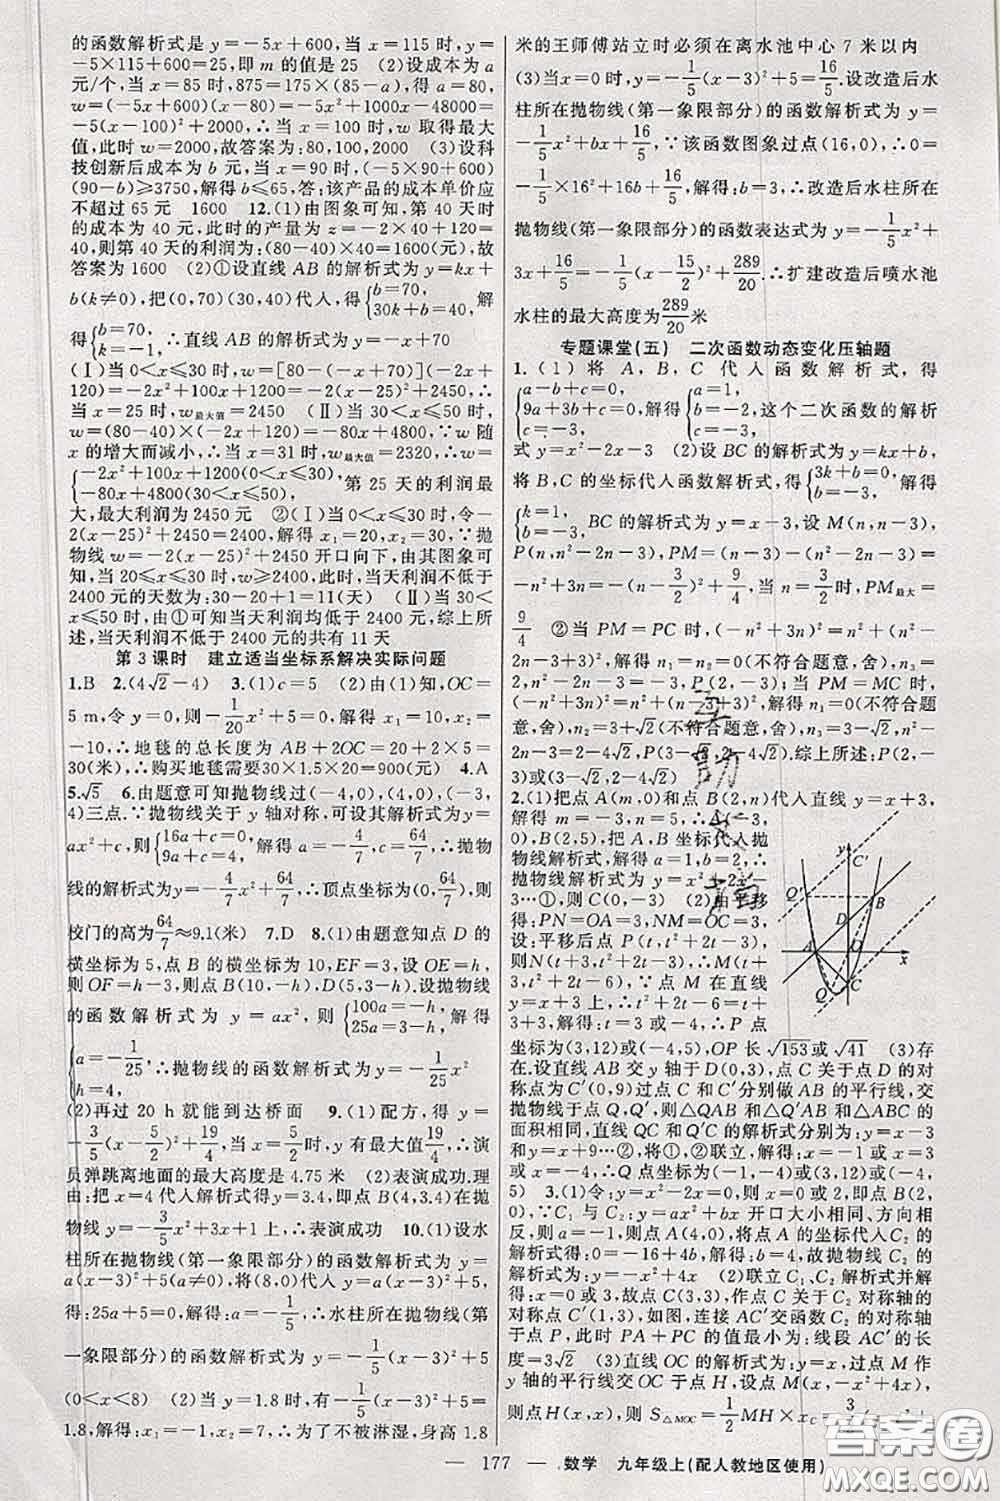 的函数解析式是 y=-5x+600,当 x=115 时,y=
-5×115+600=25,即 m 的值是 25 (2)设成本为 a
元/个,当 x=85 时,875=175×(85-a),得 a=80,
w=(-5x+600)(x-80)=-5x²+1000x-48000=
-5(x-100)²+2000,∴当 x=100 时,w 取得最大
值,此时 w=2000,故答案为:80,100,2000 (3)设科
技创新后成本为 b 元,当 x=90 时,(-5×90+600)
(90-b)≥3750,解得 b≤65,答:该产品的成本单价应
不超过 65 元 1600 12.(1)由图象可知,第 40 天时
的成本为 40 元,此时的产量为 z=-2×40+120=
40,则第 40 天的利润为:(80-40)×40=1600(元),故
答案为 1600 (2)①设直线 AB 的解析式为 y=kx+
b(k≠0),把(0,70)(30,40)代人,得{b=70, 30k+b=40, 解
得{b=70, k=-1, ∴直线 AB 的解析式为 y=-x+70
(Ⅰ)当 0<x≤30 时,w=[80-(-x+70)](-2x+
120)=-2x²+100x+1200=-2(x-25)²+2450,
∴当 x=25 时,w最大值=2450 (Ⅱ)当 30<x≤50 时,
w=(80-40)×(-2x+120)=-80x+4800,∵w 随
x 的增大而减小,∴当 x=31 时,w最大值=2320,∴w=
{-2x²+100x+1200(0<x≤30), -80x+4800(30<x≤50), 第 25 天的利润最
大,最大利润为 2450 元 ②(Ⅰ)当 0<x≤30 时,令-
2(x-25)²+2450=2400,解得 x₁=20,x₂=30,∵抛
物线 w=-2(x-25)²+2450 开口向下,由其图象可
知,当 20≤x≤30 时,w≥2400,此时,当天利润不低于
2400 元的天数为:30-20+1=11(天) (Ⅱ)当 30<
x≤50 时,由①可知当天利润均低于 2400 元,综上所
述,当天利润不低于 2400 元的共有 11 天
第 3 课时 建立适当坐标系解决实际问题
1.B 2.(4√2-4) 3.(1)c=5 (2)由(1)知,OC=
5 m,令 y=0,则-1/20x²+5=0,解得 x₁=10,x₂=
-10,∴地毯的总长度为 AB+2OC=20+2×5=
30,∴购买地毯需要 30×1.5×20=900(元) 4.A
5.√5 6.由题意可知抛物线过(-4,0),(4,0),(-3,
4)三点.∵抛物线关于 y 轴对称,可设其解析式为 y=
ax²+c,则{16a+c=0, 9a+c=4, 解得 a=-4/7,c=64/7,∴抛物
线的解析式为y=-4/7x²+64/7,∴顶点坐标为(0,64/7),则
校门的高为64/7≈9.1(米) 7.D 8.(1)由题意知点 D 的
横坐标为 5,点 B 的横坐标为 10,EF=3,设 OE=h,
则 OF=h-3,则点 B(10,-h),D(5,3-h).设抛物线
的函数解析式为 y=ax²,则{100a=-h, 25a=3-h, 解得
{a=-1/25, h=4, ∴抛物线的函数解析式为 y=-1/25x²
(2)再过 20 h 就能到达桥面 9.(1)配方,得 y=
-3/5(x-5/2)²+19/4,当 x=5/2时,y 有最大值19/4,∴演
员弹跳离地面的最大高度是 4.75 米 (2)表演成功.理
由:把 x=4 代人解析式得 y=3.4,即点 B(4,3.4)在抛
物线 y=-3/5x²+3x+1 上,∴表演成功 10.(1)设水
柱所在抛物线(第一象限部分)的函数解析式为 y=
a(x-3)²+5(a≠0),将(8,0)代人 y=a(x-3)²+5,
得:25a+5=0,解得:a=-1/5,∴水柱所在抛物线(第
一象限部分)的函数解析式为 y=-1/5(x-3)²+5
(0<x<8) (2)当 y=1.8 时,有-1/5(x-3)²+5=
1.8,解得:x₁=-1,x₂=7,∴为了不被淋湿,身高 1.8
米的王师傅站立时必须在离水池中心 7 米以内
(3)当 x=0 时,y=-1/5(x-3)²+5=16/5.设改造后水
柱所在抛物线(第一象限部分)的函数解析式为 y=
-1/5x²+bx+16/5,∵该函数图象过点(16,0),∴0=
-1/5×16²+16b+16/5,解得:b=3,∴改造后水柱所在
抛物线(第一象限部分)的函数表达式为 y=-1/5x²+
3x+16/5=-1/5(x-15/2)²+289/20.∴扩建改造后喷水池
水柱的最大高度为289/20米
专题课堂(五) 二次函数动态变化压轴题
1.(1)将 A,B,C 代人函数解析式,得
{a-b+c=0, 9a+3b+c=0, c=-3, 解得{a=1, b=-2, c=-3, 这个二次函数的解析
式 y=x²-2x-3 (2)设 BC 的解析式为 y=kx+b,
将 B,C 的坐标代人函数解析式,得{3k+b=0, b=-3, 解得
{k=1, b=-3, BC 的解析式为 y=x-3,设 M(n,n-3),
P(n,n²-2n-3),PM=(n-3)-(n²-2n-3)=
-n²+3n=-(n-3/2)²+9/4,当 n=3/2时,PM最大=
9/4 ②当 PM=PC 时,(-n²+3n)²=n²+(n²-
2n-3+3)²,解得 n₁=n₂=0(不符合题意,舍),n₃=
2,n²-2n-3=-3,P(2,-3);当 PM=MC 时,
(-n²+3n)²=n²+(n-3+3)²,解得 n₁=0(不符合题
意,舍),n₂=3+√2(不符合题意,舍),n₃=3-√2,n²-
2n-3=2-4√2,P(3-√2,2-4√2).综上所述:P(2,-
3)或(3-√2,2-4√2)
2.(1)把点 A(m,0)和点 B(2,n)代人直线 y=x+3,
解得 m=-3,n=5,∴A(-3,
0),B(2,5),把 A,B 坐标代人抛
物线解析式,解得 a=1,b=2,∴
抛物线解析式为 y=x²+2x-
3…①,则 C(0,-3) (2)由平移
得:PN=OA=3,NM=OC=3,
设:平移后点 P(t,t²+2t-3),
则N(t+3,t²+2t-3),∴M(t+
3,t²+2t-6),∵点 M 在直线
y=x+3 上,∴t²+2t-6=t+
3+3,解得:t=3 或-4,∴P 点
坐标为(3,12)或(-4,5),OP 长 √153或√41 (3)存
在.设直线 AB 交 y 轴于 D(0,3),点 C 关于点 D 的
对称点为 C′(0,9)过点 C 和 C′分别做 AB 的平行线,交
抛物线于点 Q,Q′,则△QAB 和△Q′AB 和△ABC 的
面积相同,直线 QC 和 Q′C 的解析式分别为:y=x-3
和 y=x+9…②,将①,②联立,解得:x=-1 或 x=3
或 x=-4,∴Q 点坐标为(-1,-4)或(3,12)或(-4,
5) 3.(1)令:y=x²-2x=0,则 x=0 或 2,即点 B(2,
0),∵C₁ 与 C₂:y=ax²+bx 开口大小相同、方向相
反,则 a=-1,则点 A(4,0),将点 A 的坐标代人 C₂ 的
解析式得:0=-16+4b,解得:b=4,故抛物线 C₂ 的解
析式为:y=-x²+4x (2)联立 C₁、C₂ 解析式并解
得:x=0 或 3,故点 C(3,3),作点 C 关于 C₂ 对称轴的
对称点 C′(1,3),如图,连接 AC′交函数 C₂ 的对称轴于
点 P,此时 PA+PC 的值最小为:线段 AC′的长
度=3√2 (3)直线 OC 的解析式为:y=x,过点 M 作
y 轴的平行线交 OC 于点 H,设点 M(x,-x²+4x),
则点H(x,x),则 S△MOC=1/2MH×xC=3/2(-x²+
— 177 — 数学 九年级上(配人教地区使用)
Q′ y C′ B D A O x Q C
答案圈
MXQE.COM